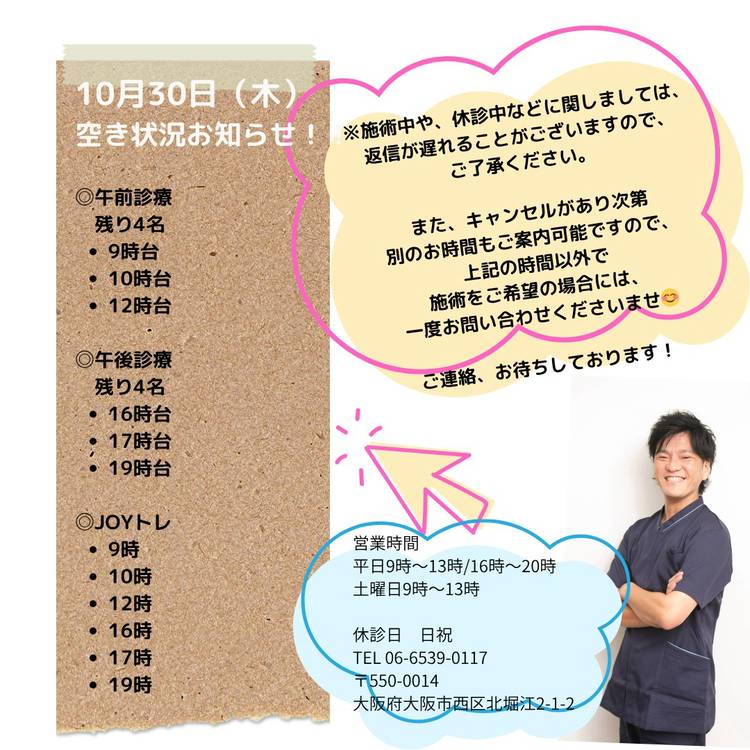 10月30日（木）
空き状況お知らせ！
◎午前診療
残り4名
• 9時台
• 10時台
• 12時台
◎午後診療
残り4名
• 16時台
• 17時台
• 19時台
◎JOYトレ
• 9時
• 10時
• 12時
• 16時
• 17時
• 19時
※施術中や、休診中などに関しましては、
返信が遅れることがございますので、
ご了承ください。
また、キャンセルがあり次第
別のお時間もご案内可能ですので、
上記の時間以外で
施術をご希望の場合には、
一度お問い合わせくださいませ😊
ご連絡、お待ちしております！
営業時間
平日9時〜13時/16時〜20時
土曜日9時〜13時
休診日　日祝
TEL 06-6539-0117
〒550-0014
大阪府大阪市西区北堀江2-1-2